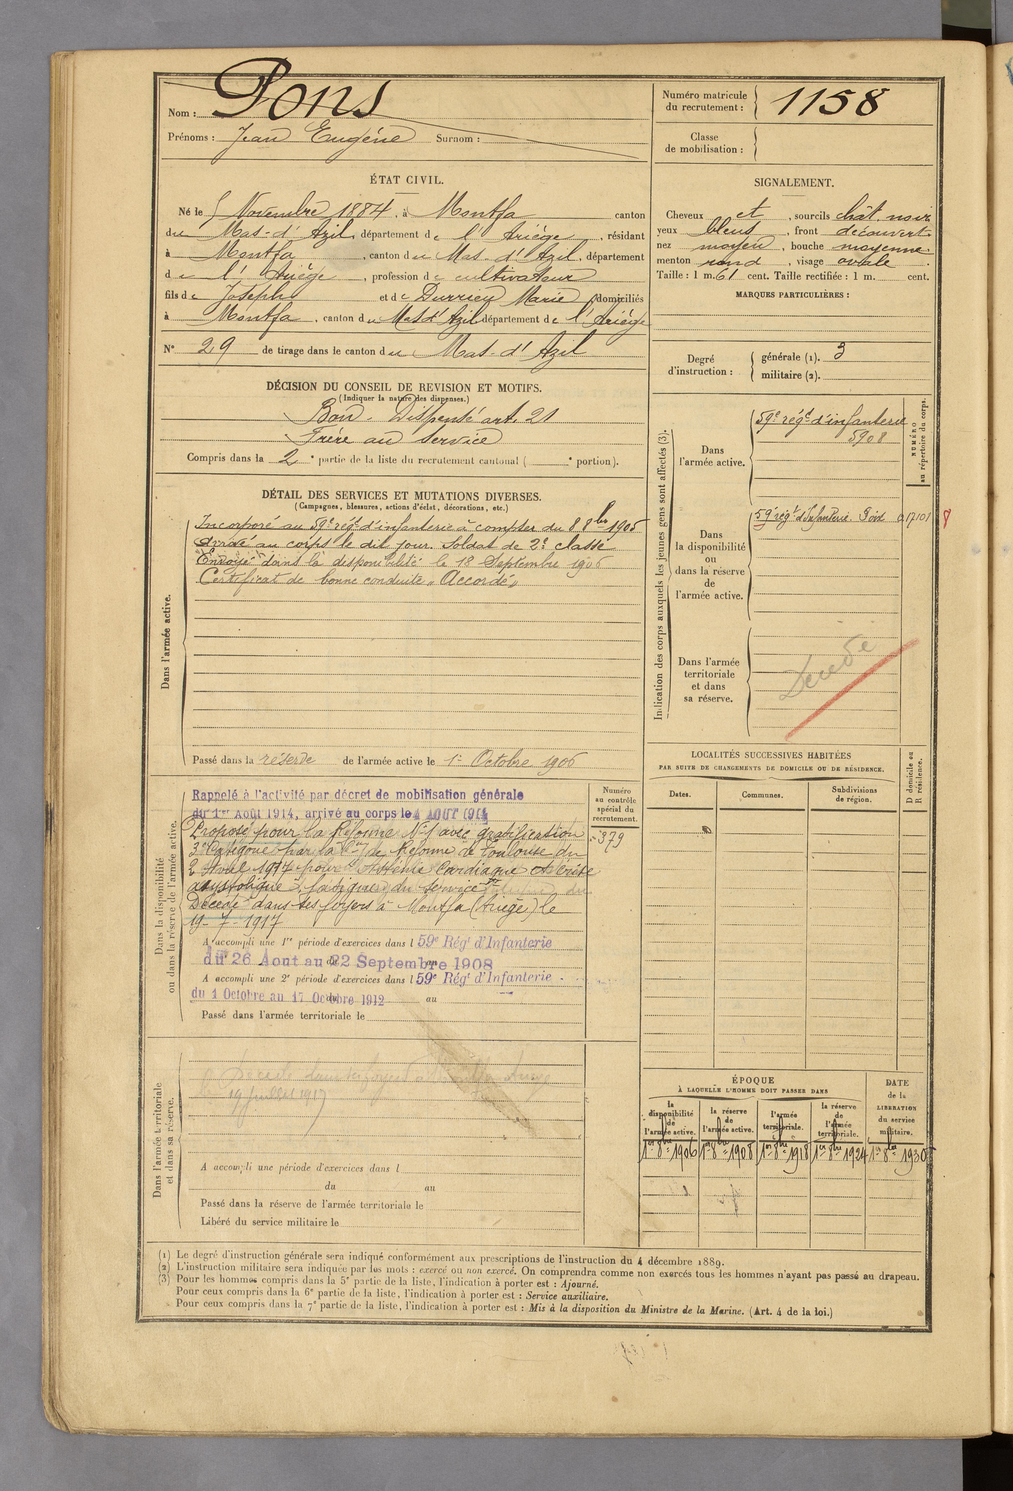 Nom : Pons
Prénoms : Jean Eugène Surnom :
Numéro matricule
du recrutement : 1158
Classe
de mobilisation :
ÉTAT CIVIL.
Né le 5 Novembre 1884, à Montfa canton
du Mas-d'Azil, département de l'Ariège, résidant
à Montfa, canton du Mas-d'Azil, département
de l'Ariège, profession de cultivateur
fils de Joseph et de Durrieu Marie domiciliés
à Montfa, canton du Mas d'Azil département de l'Ariège
N° 29 de tirage dans le canton du Mas-d'Azil
SIGNALEMENT.
Cheveux et, sourcils chât. noir
yeux bleus, front découvert
nez moyen, bouche moyenne
menton rond, visage ovale.
Taille : 1 m. 61 cent. Taille rectifiée : 1 m. cent.
MARQUES PARTICULIÈRES :
Degré
d'instruction :
générale (1). 3
militaire (2).
DÉCISION DU CONSEIL DE REVISION ET MOTIFS.
(Indiquer la nature des dispenses.)
Bon - Dispensé art. 21
Frère au service
Compris dans la 2e partie de la liste du recrutement cantonal ( e portion).
DÉTAIL DES SERVICES ET MUTATIONS DIVERSES.
(Campagnes, blessures, actions d'éclat, décorations, etc.)
Dans l'armée active.
Incorporé au 59e régt d'infanterie à compter du 8 8bre 1905
Arrivé au corps le dit jour. Soldat de 2e classe
Envoyé dans la disponibilité le 18 Septembre 1906
Certificat de bonne conduite "Accordé"
Passé dans la réserve de l'armée active le 1er Octobre 1906
Indication des corps auxquels les jeunes gens sont affectés (3).
Dans
l'armée active.
59e régt d'infanterie
5908
NUMÉRO
au répertoire du corps.
Dans
la disponibilité
ou
dans la réserve
de
l'armée active.
59e régt d'Infanterie. Foix
Dans l'armée
territoriale
et dans
sa réserve.
Décédé
Dans la disponibilité
ou dans la réserve de l'armée active.
Rappelé à l'activité par décret de mobilisation générale
du 1er Août 1914, arrivé au corps le 4 AOUT 1914
Proposé pour la Réforme N°1 avec gratification
3e Catégorie par la Con de Réforme de Toulouse du
2 Avril 1917 pour Asthénie Cardiaque
asystolique, fatigues du service
Décédé dans ses foyers à Montfa (Ariège) le
19-7-1917
A accompli une 1re période d'exercices dans l 59e Régt d'Infanterie
du 26 Aout au 22 Septembre 1908
A accompli une 2e période d'exercices dans l 59e Régt d'Infanterie
du 1 Octobre au 17 Octobre 1912 au
Passé dans l'armée territoriale le
Numéro
au contrôle
spécial du
recrutement.
379
LOCALITÉS SUCCESSIVES HABITÉES
PAR SUITE DE CHANGEMENTS DE DOMICILE OU DE RÉSIDENCE.
Dates.
Communes.
Subdivisions
de région.
D domicile ou
R résidence.
Dans l'armée territoriale
et dans sa réserve.
Décédé dans ses foyers à
19 Juillet 1917
A accompli une période d'exercices dans l
du au
Passé dans la réserve de l'armée territoriale le
Libéré du service militaire le
ÉPOQUE
À LAQUELLE L'HOMME DOIT PASSER DANS
la
disponibilité
de
l'armée active.
la réserve
de
l'armée active.
l'armée
territoriale.
la réserve
de
l'armée
territoriale.
DATE
de la
LIBÉRATION
du service
militaire.
1er 8bre 1906 1er 8bre 1908 1er 8bre 1918 1er 8bre 1924 1er 8bre 1930
(1) Le degré d'instruction générale sera indiqué conformément aux prescriptions de l'instruction du 4 décembre 1889.
(2) L'instruction militaire sera indiquée par les mots : exercé ou non exercé. On comprendra comme non exercés tous les hommes n'ayant pas passé au drapeau.
(3) Pour les hommes compris dans la 5e partie de la liste, l'indication à porter est : Ajourné.
Pour ceux compris dans la 6e partie de la liste, l'indication à porter est : Service auxiliaire.
Pour ceux compris dans la 7e partie de la liste, l'indication à porter est : Mis à la disposition du Ministre de la Marine. (Art. 4 de la loi.)